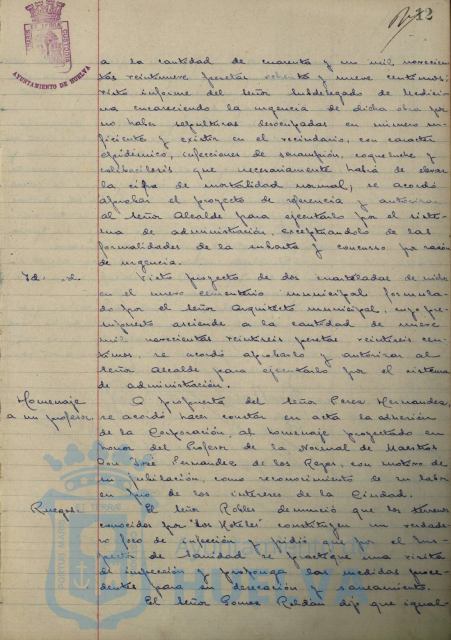 12
AYUNTAMIENTO DE HUELVA
a la cantidad de cuarenta y un mil novecien
tas veintinueve pesetas ochenta y nueve centimos;
visto informe del Señor Subdelegado de Medici
na encareciendo la urgencia de dicha obra por
no haber sepulturas desocupadas en número su
ficiente y existir en el vecindario, con caracter
epidémico, infecciones de sarampión, coqueluche y
colibacilosis que necesariamente habrá de elevar
la cifra de mortalidad normal, se acordó
aprobar el proyecto de referencia y autorizar
al Señor Alcalde para ejecutarlo por el siste
ma de administración, exceptuandolo de las
formalidades de la subasta y concurso por razón
de urgencia.
Id. id. Visto proyecto de dos cuarteladas de nichos
en el nuevo cementerio municipal formula
do por el Señor Arquitecto municipal, cuyo pre
supuesto asciende a la cantidad de nueve
mil novecientas veintiseis pesetas veintiseis cen
timos, se acordó aprobarlo y autorizar al
Señor Alcalde para ejecutarlo por el sistema
de administración.
Homenaje A propuesta del Señor Perez Hernandez,
a un profesor. se acordó hacer constar en acta la adhesión
de la Corporación, al homenaje proyectado en
honor del Profesor de la Normal de Maestros
Don José Fernandez de los Reyes, con motivo de
su jubilación, como reconocimiento de su labor
en pro de los intereses de la Ciudad.
Ruegos. El Señor Robles denunció que los terrenos
conocidos por "Los Hoteles" constituyen un verdade
ro foco de infección y pidió que por el Ins
pector de Sanidad se practique una visita
de inspección y proponga las medidas proce
dentes para su desecación y saneamiento.
El Señor Gomez Roldán dijo que igual-
PORTUS MARIS
HUELVA